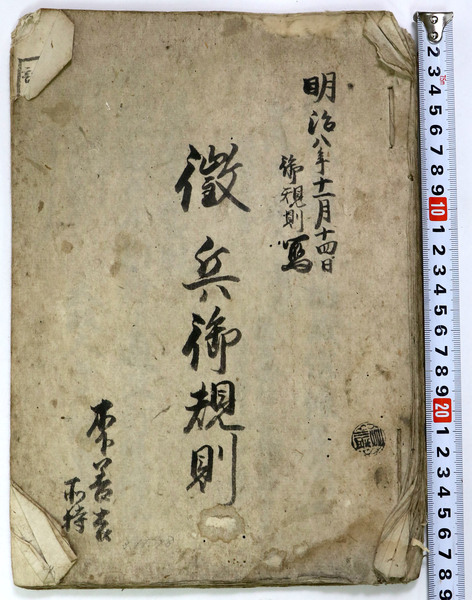 明治八年十一月十四日
御規則寫
徴兵御規則
善吉
所持
2 3 4 5 6 7 8 9 10 1 2 3 4 5 6 7 8 9 20 1 2 3 4 5 6 7 8 9